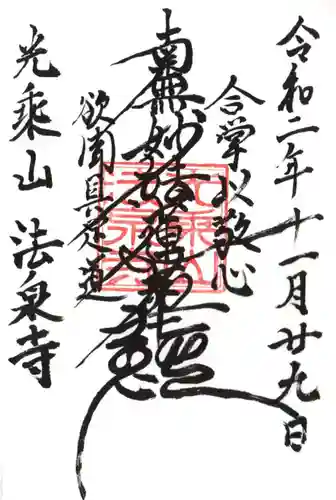 令和二年十一月廿九日
合掌以敬心
南無妙法蓮華經
欲聞具足道
光乗山 法泉寺